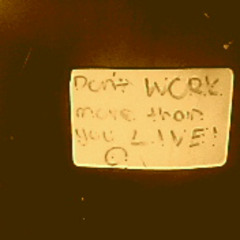 Don't WORK
more than
you LIVE!